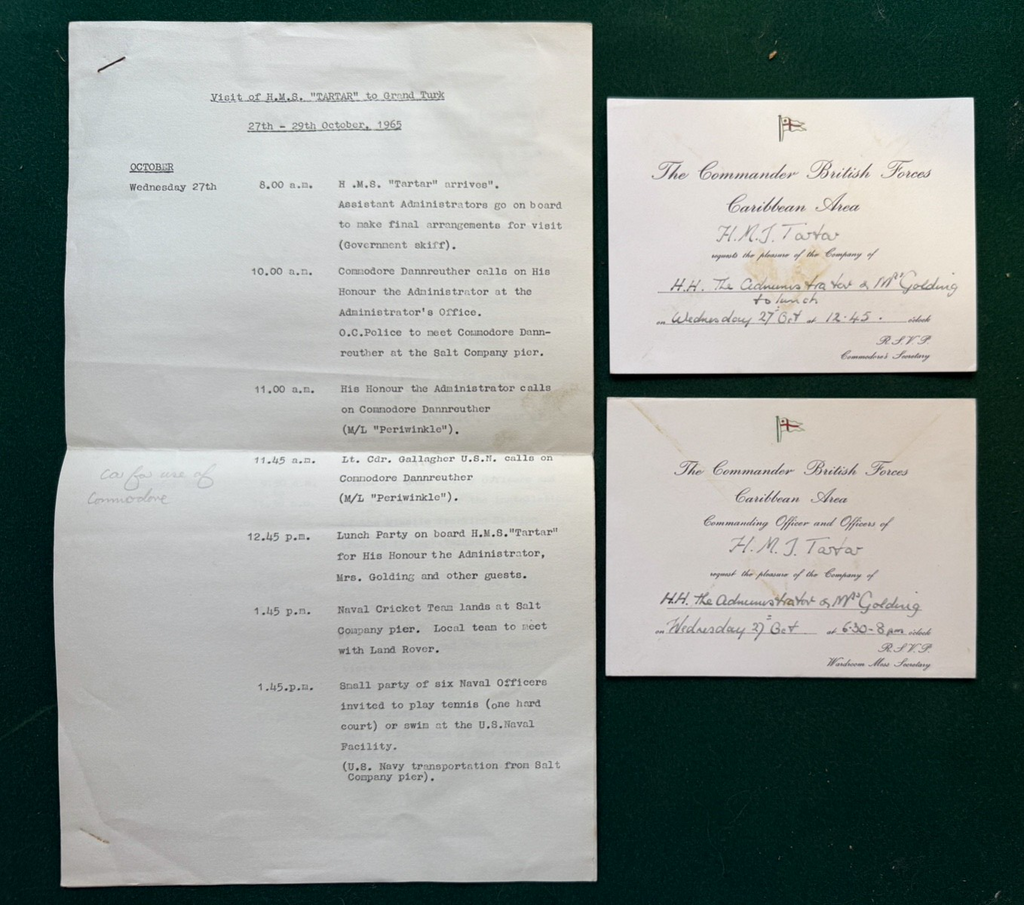 Visit of H.M.S. "TARTAR" to Grand Turk
27th - 29th October, 1965
OCTOBER
Wednesday 27th 8.00 a.m. H .M.S. "Tartar" arrives".
Assistant Administrators go on board
to make final arrangements for visit
(Government skiff).
10.00 a.m. Commodore Dannreuther calls on His
Honour the Administrator at the
Administrator's Office.
O.C.Police to meet Commodore Dann-
reuther at the Salt Company pier.
11.00 a.m. His Honour the Administrator calls
on Commodore Dannreuther
(M/L "Periwinkle").
11.45 a.m. Lt. Cdr. Gallagher U.S.N. calls on
Commodore Dannreuther
(M/L "Periwinkle").
Car for use of
Commodore
12.45 p.m. Lunch Party on board H.M.S."Tartar"
for His Honour the Administrator,
Mrs. Golding and other guests.
1.45 p.m. Naval Cricket Team lands at Salt
Company pier. Local team to meet
with Land Rover.
1.45.p.m. Small party of six Naval Officers
invited to play tennis (one hard
court) or swim at the U.S.Naval
Facility.
(U.S. Navy transportation from Salt
Company pier).
The Commander British Forces
Caribbean Area
H.M.S. Tartar
requests the pleasure of the Company of
H.H. The Administrator & Mrs Golding
to lunch
on Wednesday 27th Oct at 12.45. o'clock
R.S.V.P.
Commodore's Secretary
The Commander British Forces
Caribbean Area
Commanding Officer and Officers of
H.M.S. Tartar
request the pleasure of the Company of
H.H. The Administrator & Mrs Golding
on Wednesday 27th Oct at 6.30-8 pm o'clock
R.S.V.P.
Wardroom Mess Secretary